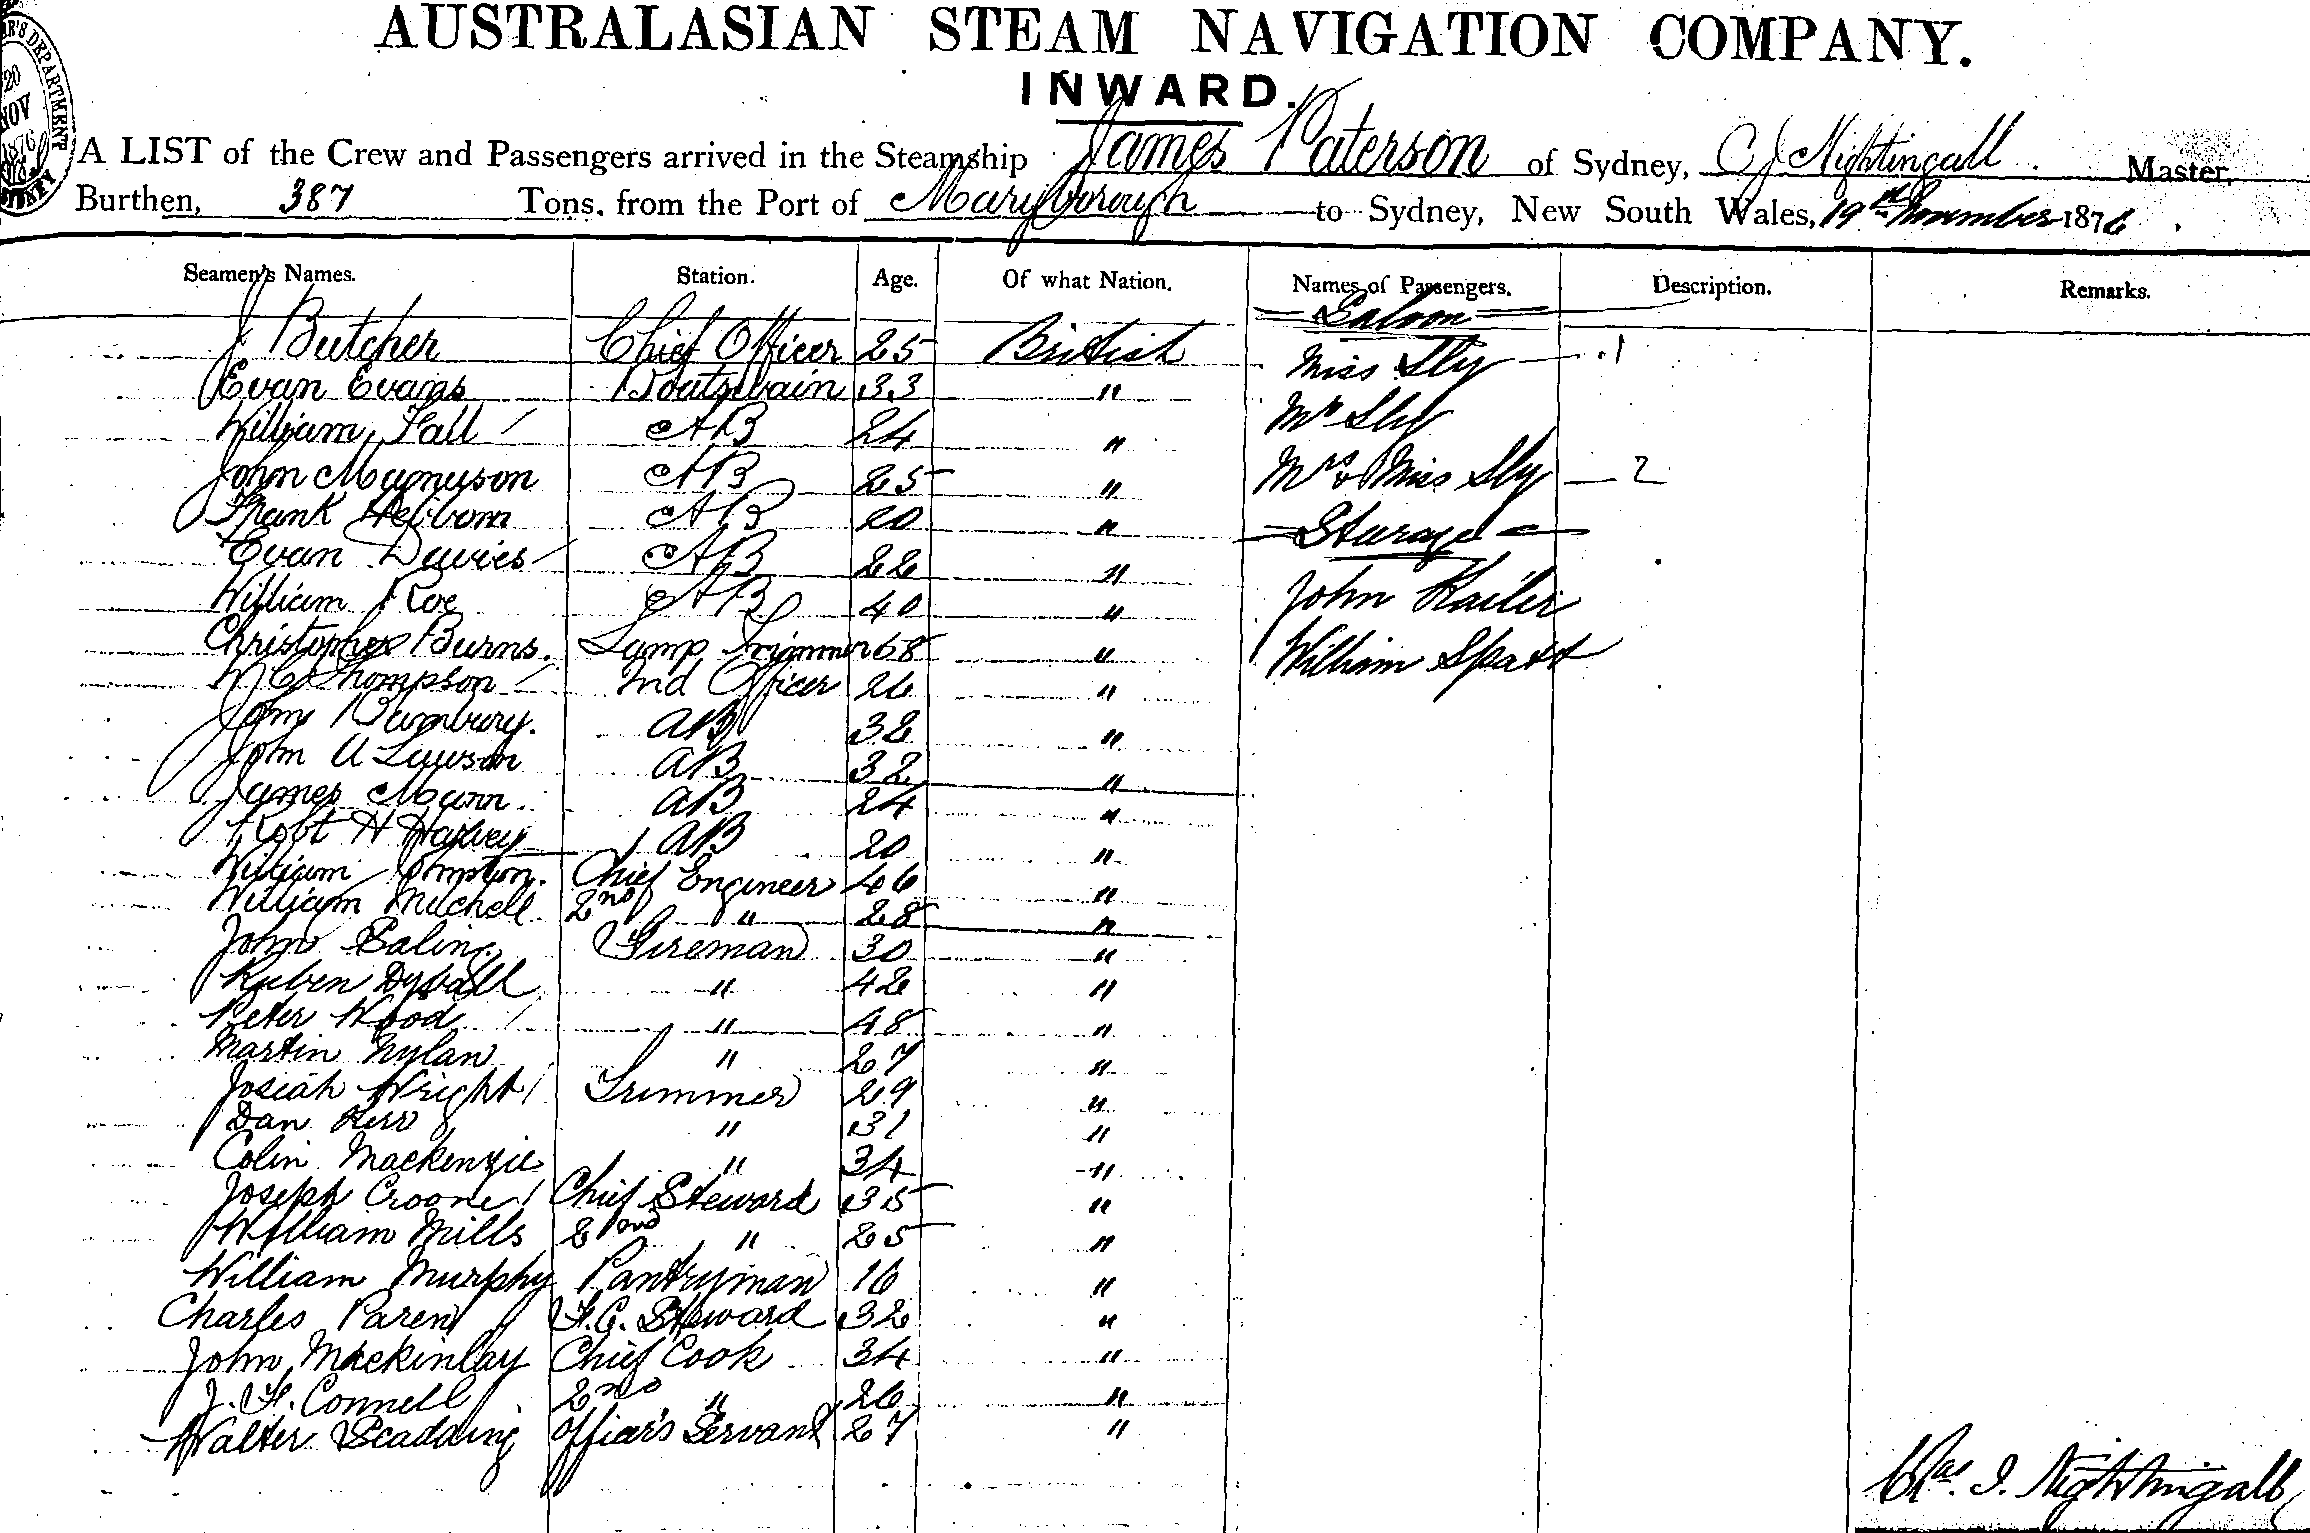 AUSTRALASIAN STEAM NAVIGATION COMPANY.
INWARD.
A LIST of the Crew and Passengers arrived in the Steamship James Paterson of Sydney, C J Nightingall Master,
Burthen, 387 Tons, from the Port of Maryborough to Sydney, New South Wales, 19th November 1876
20 NOV 1876
Seamen's Names. Station. Age. Of what Nation. Names of Passengers. Description. Remarks.
Saloon
J Butcher Chief Officer 25 British Miss Sly 1
Evan Evans Boatswain 33 " Mr Sly
William Hall AB 24 "
John Magnuson AB 25 " Mrs & Miss Sly 2
Frank AB 20 " Sturage
Evan Davies AB 22 "
William Roe AB 40 " John
Christopher Burns. Lamp Trimmer 68 " William
W C Thompson 2nd Officer 26 "
John Bambury. AB 32 "
John A Lawson AB 32 "
James Mann AB 24 "
Robt H Harvey AB 20 "
William Chief Engineer 46 "
William Mitchell 2nd " 28 "
John Saling Fireman 30 "
Ruben " 42 "
Peter Wood " 48 "
Martin Nylan " 27 "
Josiah Wright Trimmer 29 "
Dan Kerr " 31 "
Colin Mackenzie " 34 "
Joseph Croone Chief Steward 35 "
William Mills 2nd " 25 "
William Murphy Pantryman 16 "
Charles Paren F.C. Steward 32 "
John Mackinlay Chief Cook 34 "
J. F. Connell 2nd " 26 "
Walter Scadding Officer's Servant 27 "
Chas. J. Nightingall